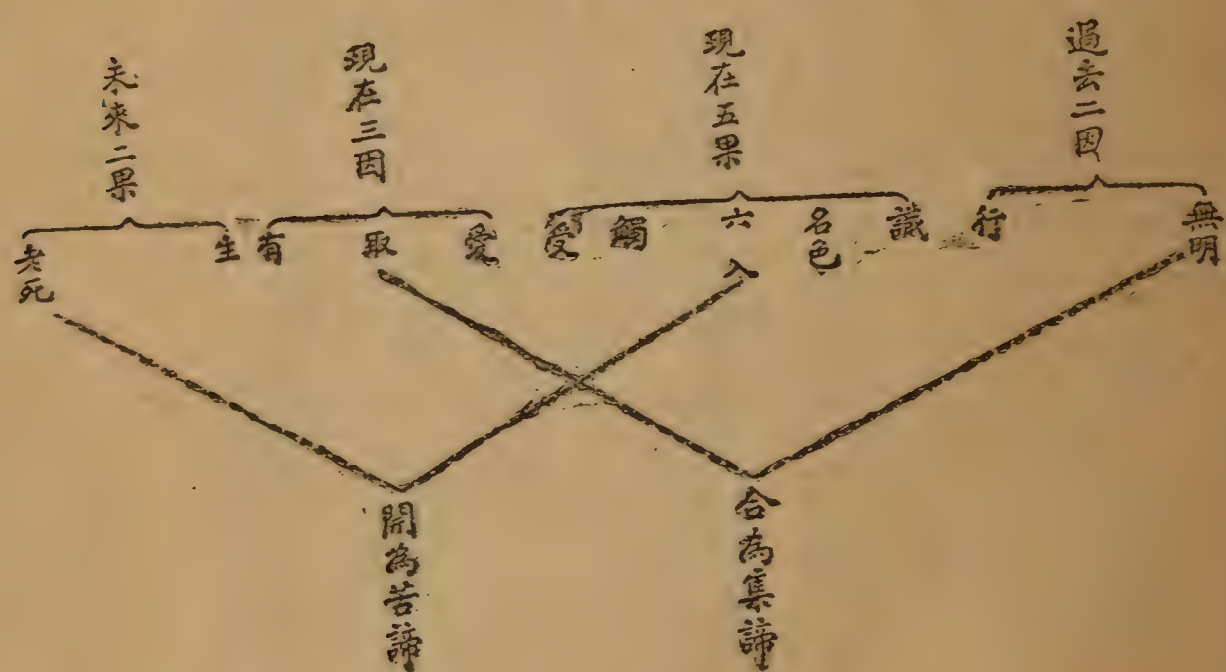 過去二因
現在五果
現在三因
未來二果
無明
行
識
名色
六入
觸
受
愛
取
有
生
老死
合為集諦
開為苦諦